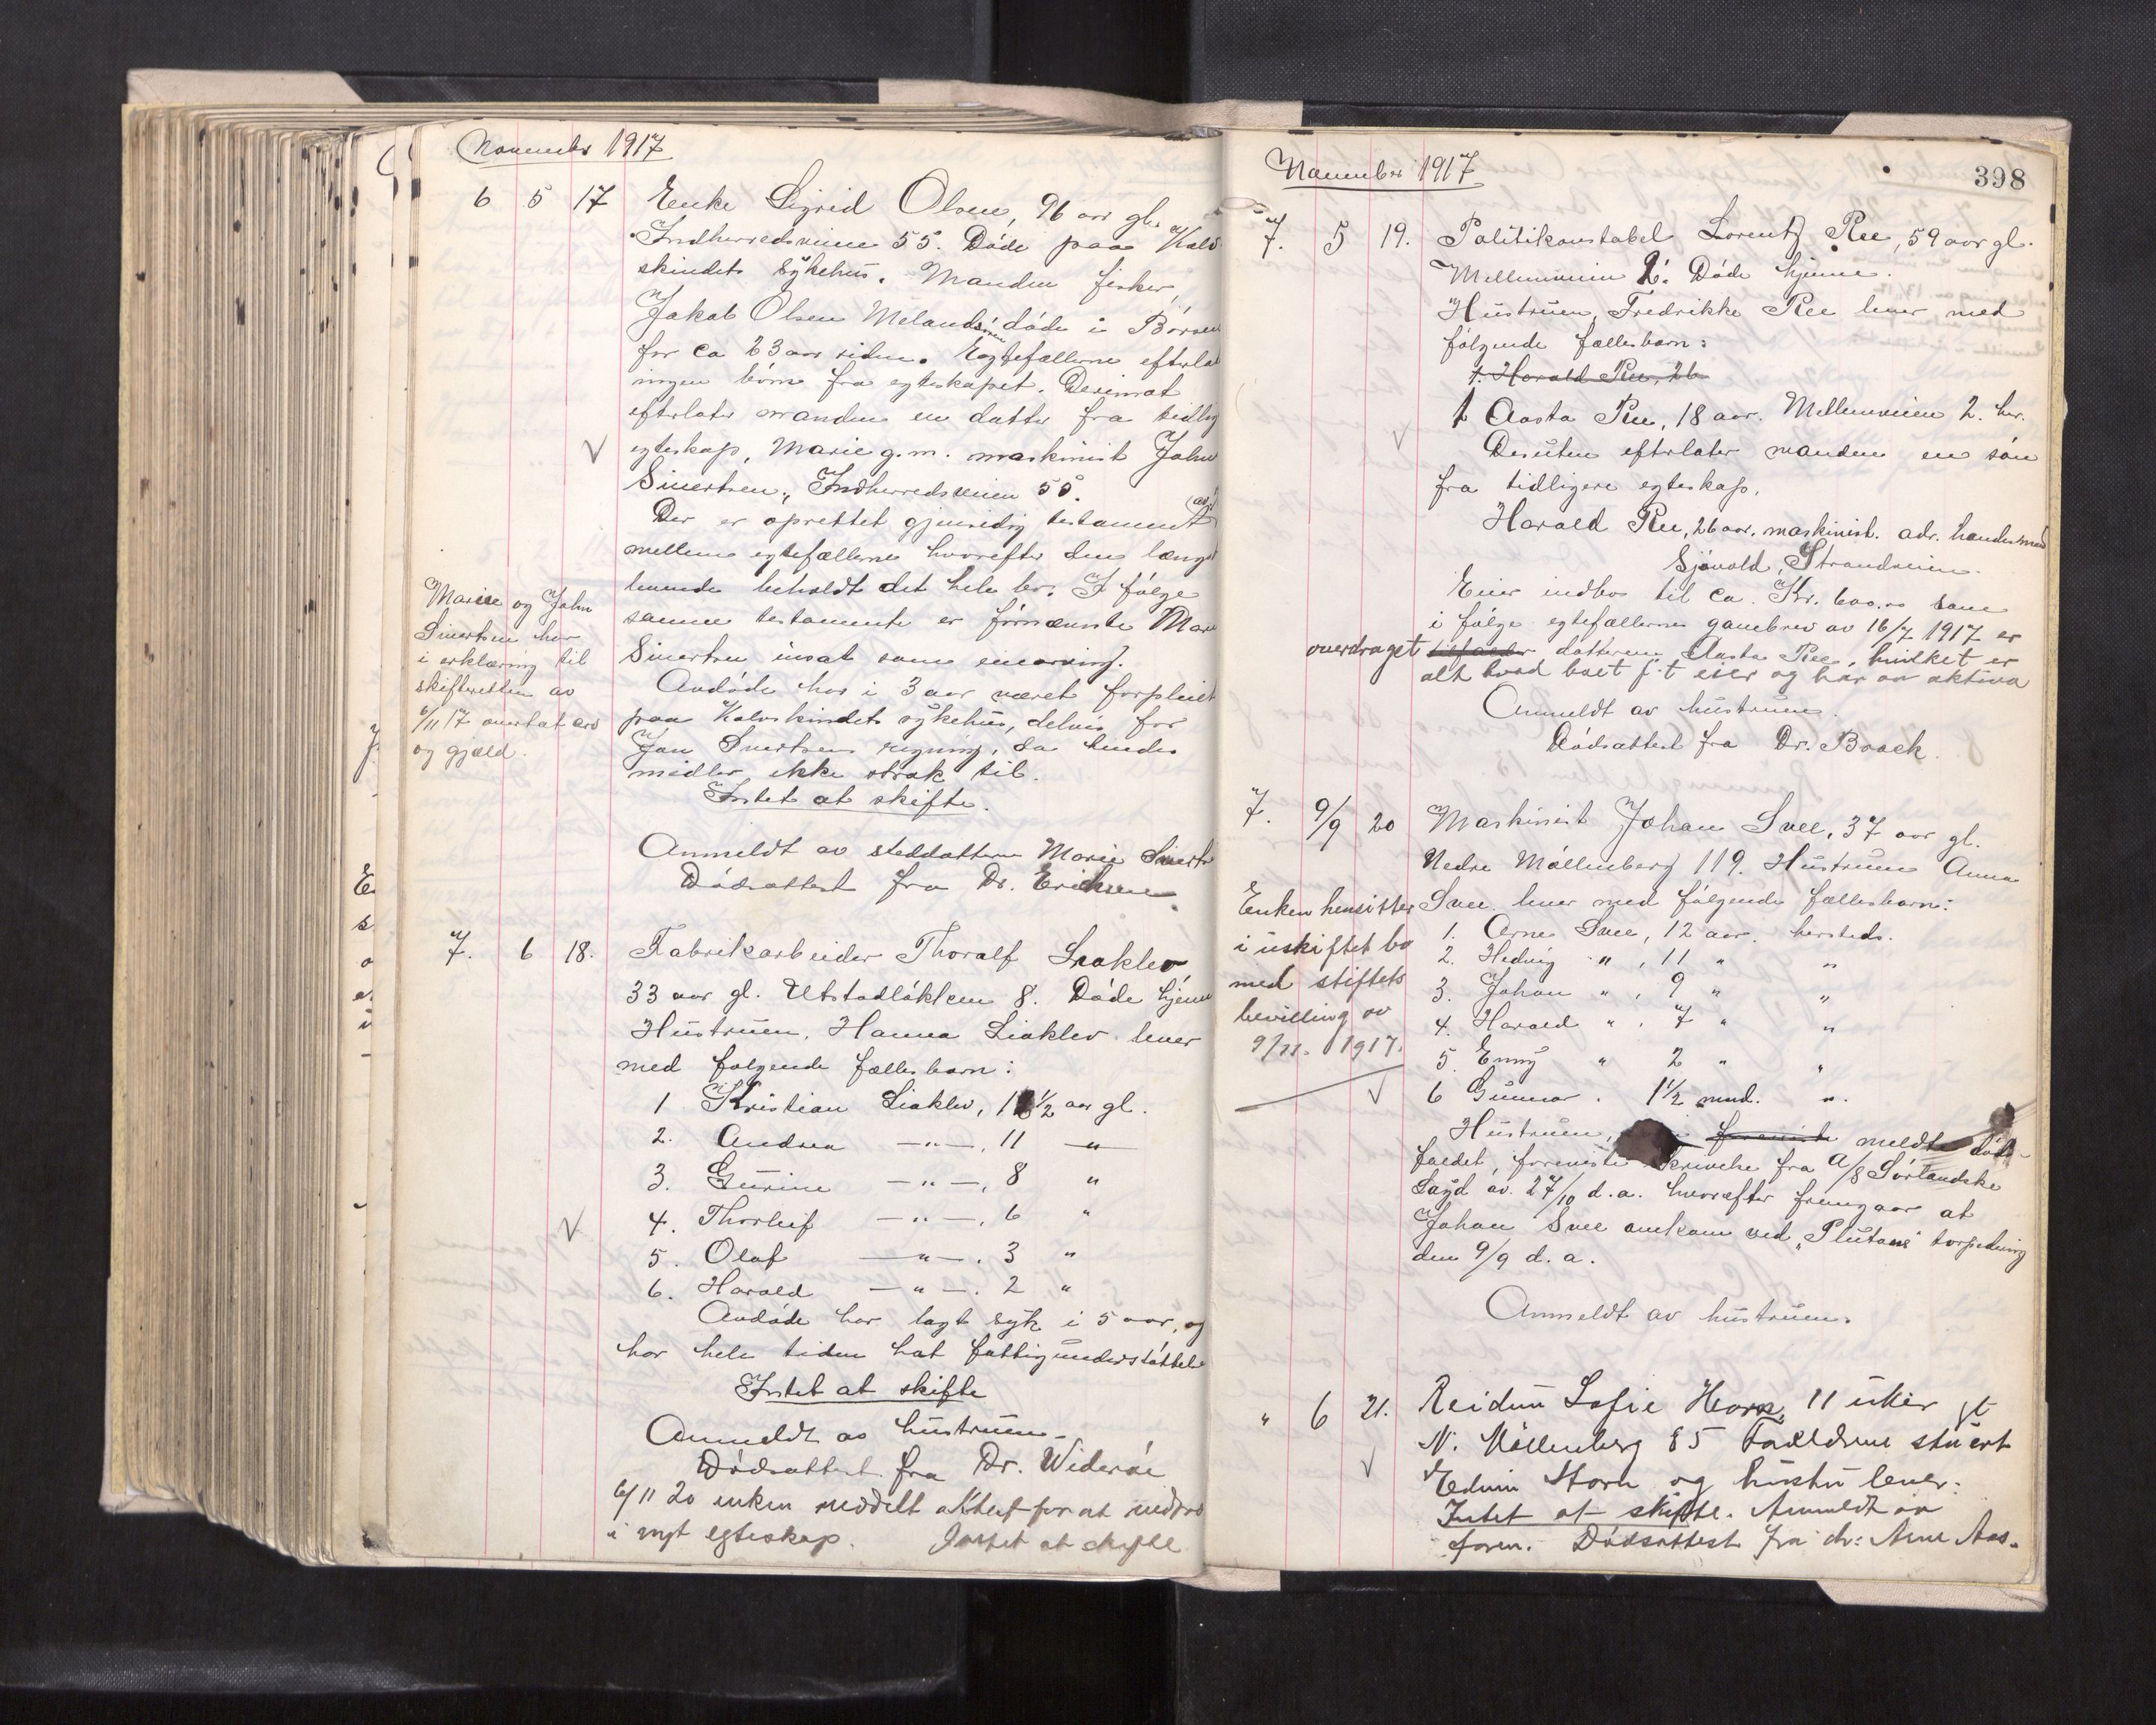 November 1917
6 5 17 Enke Sigrid Olsen, 96 aar gl.
Indherredsveien 55. Døde paa Kalv-
skindets sykehus. Manden fisker
Jakob Olsen døde i Børsen
for ca 23 aar siden. Egtefællerne efterla
ingen børn fra egteskapet. Derimot
efterlater manden en datter fra tidlig
egteskap, Marie g. m. maskinist John
Sivertsen, Indherredsveien 55.
Der er oprettet gjensidig testament
mellem egtefællerne hvorefter den længst
levende beholdt det hele bo. I følge
samme testamente er førnævnte Mari
Sivertsen insat som enearving.
Avdøde har i 3 aar været forpleiet
paa Kalvskindets sykehus, delvis for
Jon Sivertsens regning, da hendes
midler ikke strak til.
Intet at skifte.
Anmeldt av steddatteren Marie Siverts
Dødsattest fra Dr. Eriksen
Marie og John
Sivertsen har
i erklæring til
skifteretten av
6/11 17 overtat arv
og gjæld.
7. 6 18. Fabrikarbeider Thoralf Liaklev
33 aar gl. Ubstadløkken 8. Døde hjemme
Hustruen, Hanna Liaklev lever
med følgende fællesbarn:
1 Kristian Liaklev, 1 1/2 aar gl.
2. Andrea —"—, 11 —"
3. Gurine —"—, 8 "
4. Thorleif —"—, 6 "
5. Olaf —"—. 3 "
6. Harald —"—. 2 "
Avdøde har lagt syk i 5 aar, og
har hele tiden hat fattigunderstøttelse
Intet at skifte
Anmeldt av hustruen.
Dødsattest fra Dr. Widerøe
6/11 20 enken meddelt attest for at indtræ
i nyt egteskap. Intet at skifte
November 1917
398
7. 5 19. Politikonstabel Lorentz Ree, 59 aar gl.
Mellemveien 2. Døde hjemme.
Hustruen, Fredrikke Ree lever med
følgende fællesbarn:
1. Harald Ree, 26
1 Aasta Ree, 18 aar. Mellemveien 2. her.
Desuten efterlater manden en søn
fra tidligere egteskap,
Harald Ree, 26 aar, maskinist. adr. handelsmand
Sjøvold, Strandveien.
Eier indbo til ca. Kr. 600.00 som
i følge egtefællernes gavebrev av 16/7 1917 er
overdraget tilfalder datteren Aasta Ree, hvilket er
alt hvad boet f. t. eier og har av aktiva
Anmeldt av hustruen.
Dødsattest fra Dr. Brock.
7. 9/9 20 Maskinist Johan Svee, 37 aar gl.
Nedre Møllenberg 119. Hustruen Anna
Svee lever med følgende fællesbarn:
1. Arne Svee, 12 aar. hersteds.
2. Hedvig " , 11 " "
3. Johan " , 9 " "
4. Harald " , 7 " "
5. Enny " 2 " "
6 Gunnar . 1 1/2 mnd. ".
Enken hensitter
i uskiftet bo
med stiftets
bevilling av
9/11. 1917.
Hustruen, meldte døds-
faldet, foreviste skrivelse fra A/S Sørlandske
Lloyd av 27/10 d. a. hvorefter fremgaar at
Johan Svee omkom ved "Plutos" torpedering
den 9/9 d. a.
Anmeldt av hustruen.
" 6 21. Reidun Sofie Horn, 11 uker gl
N. Møllenberg 85 Forældrene stuert
Edvin Horn og hustru lever.
Intet at skifte. Anmeldt av
faren. Dødsattest fra dr: Arne Aas.